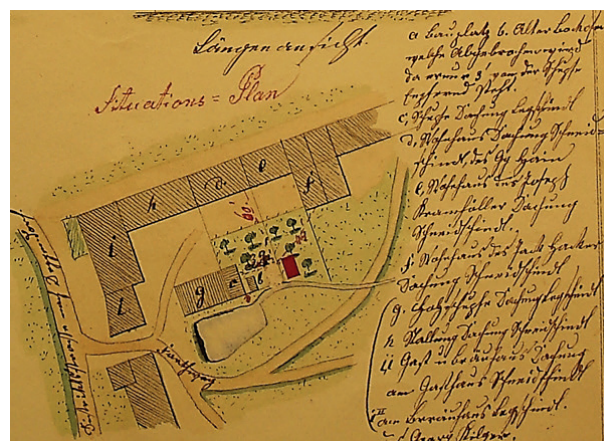 Längenansicht.
Situations=Plan
a Bauplatz b. Alter Backofen
welche Abgebrochen wird
da er nur 3' von der Schupfe
entfernd steht.
c, Schupfe Dachung Legschindl
d, Wohnhaus Dachung Schneid=
schindl des Gg Ham
e, Wohnhaus des Joseph
Dachung
Schneidschindl.
f. Wohnhaus des Jack Hacker
Dachung Schneidschindl
g. Holzschupfe Dachung Legschindl
h Stallung Dachung Schneidschindl
i l Gast u Brauhaus Dachung
am Gasthaus Schneidschindl
am Brauhaus Legschindl.
Georg
h
d
e
f
i
l
g
c
b
60'